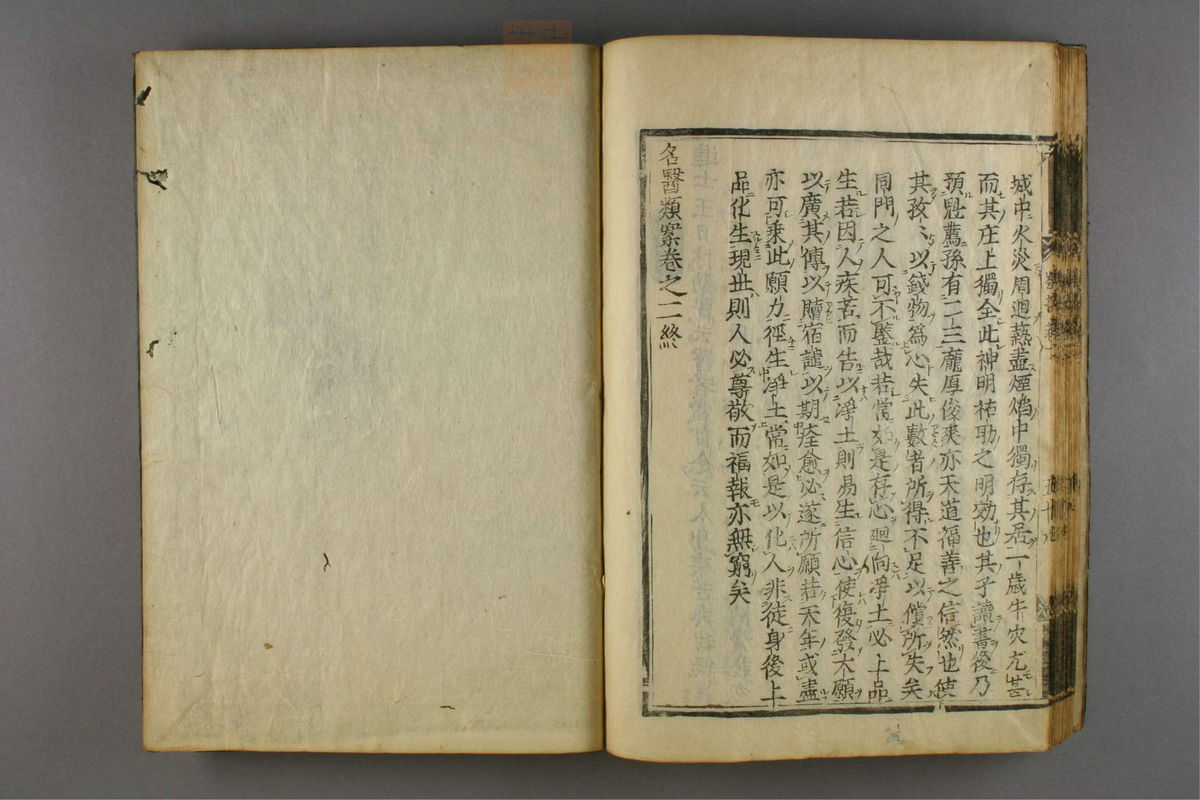 城中火災周迴爇盡煙焰中獨存其居一歲牛灾尤甚
而其庄上獨全此神明祐助之明効也其子讀書後乃
預魁薦孫有二三龐厚俊爽亦天道福善之信然也使
其孜〻以錢物爲心失此數者所得不足以償所失矣
同門之人可不鑒哉若常如是存心廻向淨土必上品
生若因人疾苦而告以淨土則易生信心使復發大願
以廣其傳以贖宿譴以期痊愈必遂所願若天年或盡
亦可乘此願力徑生淨土常如是以化人非徒身後上
品化生現世則人必尊敬而福報亦無窮矣
名醫類案卷之二終